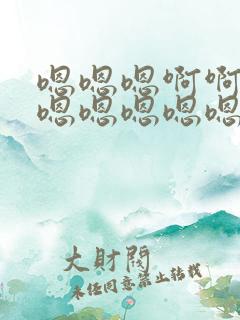 嗯嗯嗯啊啊
嗯嗯嗯嗯嗯
大财阀
未经同意禁止转载